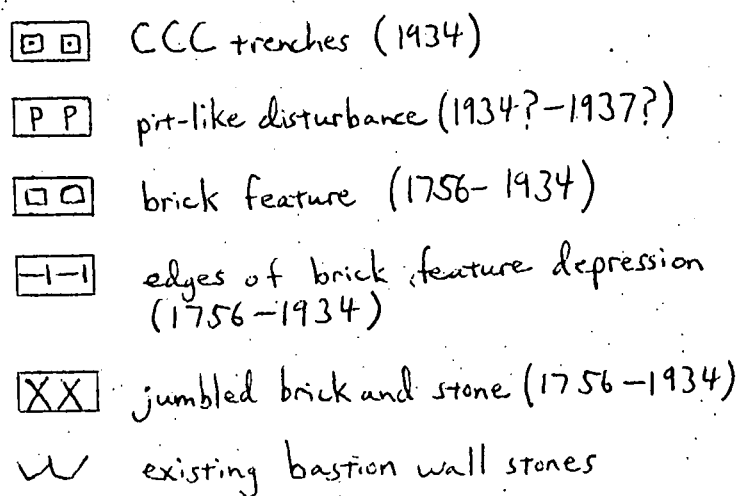 CCC trenches (1934)
P P pit-like disturbance (1934?-1937?)
brick feature (1756-1934)
edges of brick feature depression
(1756-1934)
XX jumbled brick and stone (1756-1934)
existing bastion wall stones